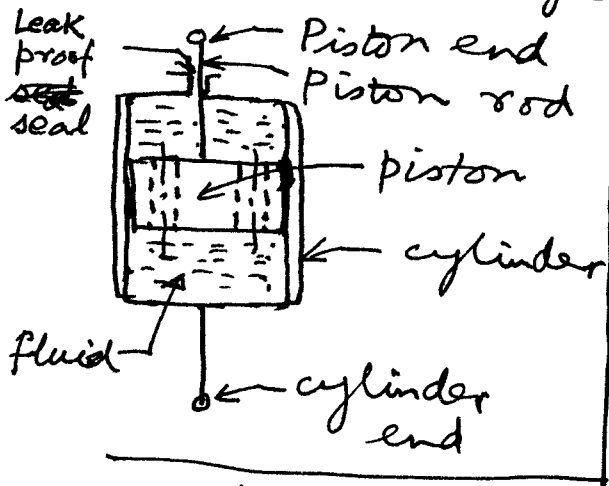 Leak
proof
seal
Piston end
Piston rod
piston
cylinder
fluid
cylinder
end